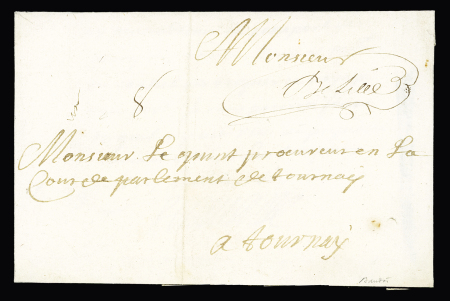 Monsieur
De Lille
8
Monsieur Le quint procureur en La
Cour de parlement de tournay
a tournay